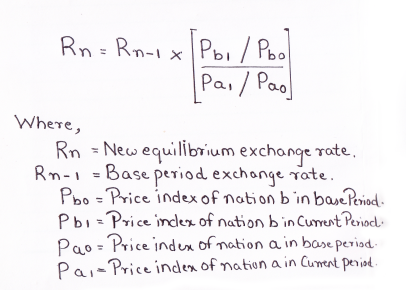 Rn = Rn-1 x [Pb1 / Pb0
Pa1 / Pa0]
Where,
Rn = New equilibrium exchange rate.
Rn-1 = Base period exchange rate.
Pbo = Price index of nation b in base Period.
Pb1 = Price index of nation b in Current Period.
Pao = Price index of nation a in base period.
Pa1 = Price index of nation a in Current period.